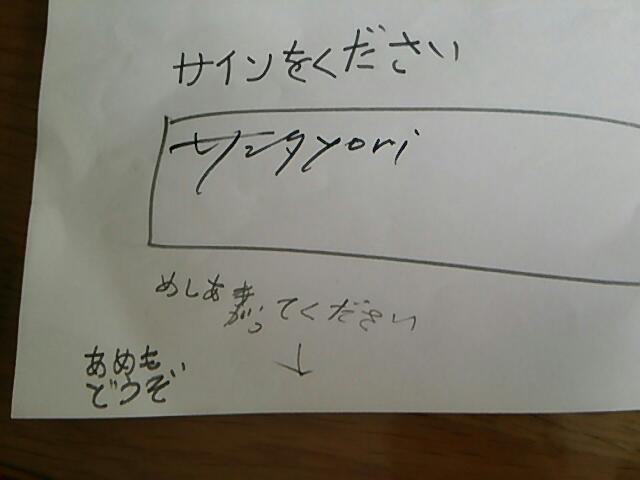 サインをください
サンタyori
めしあがってください
↓
あめも
どうぞ